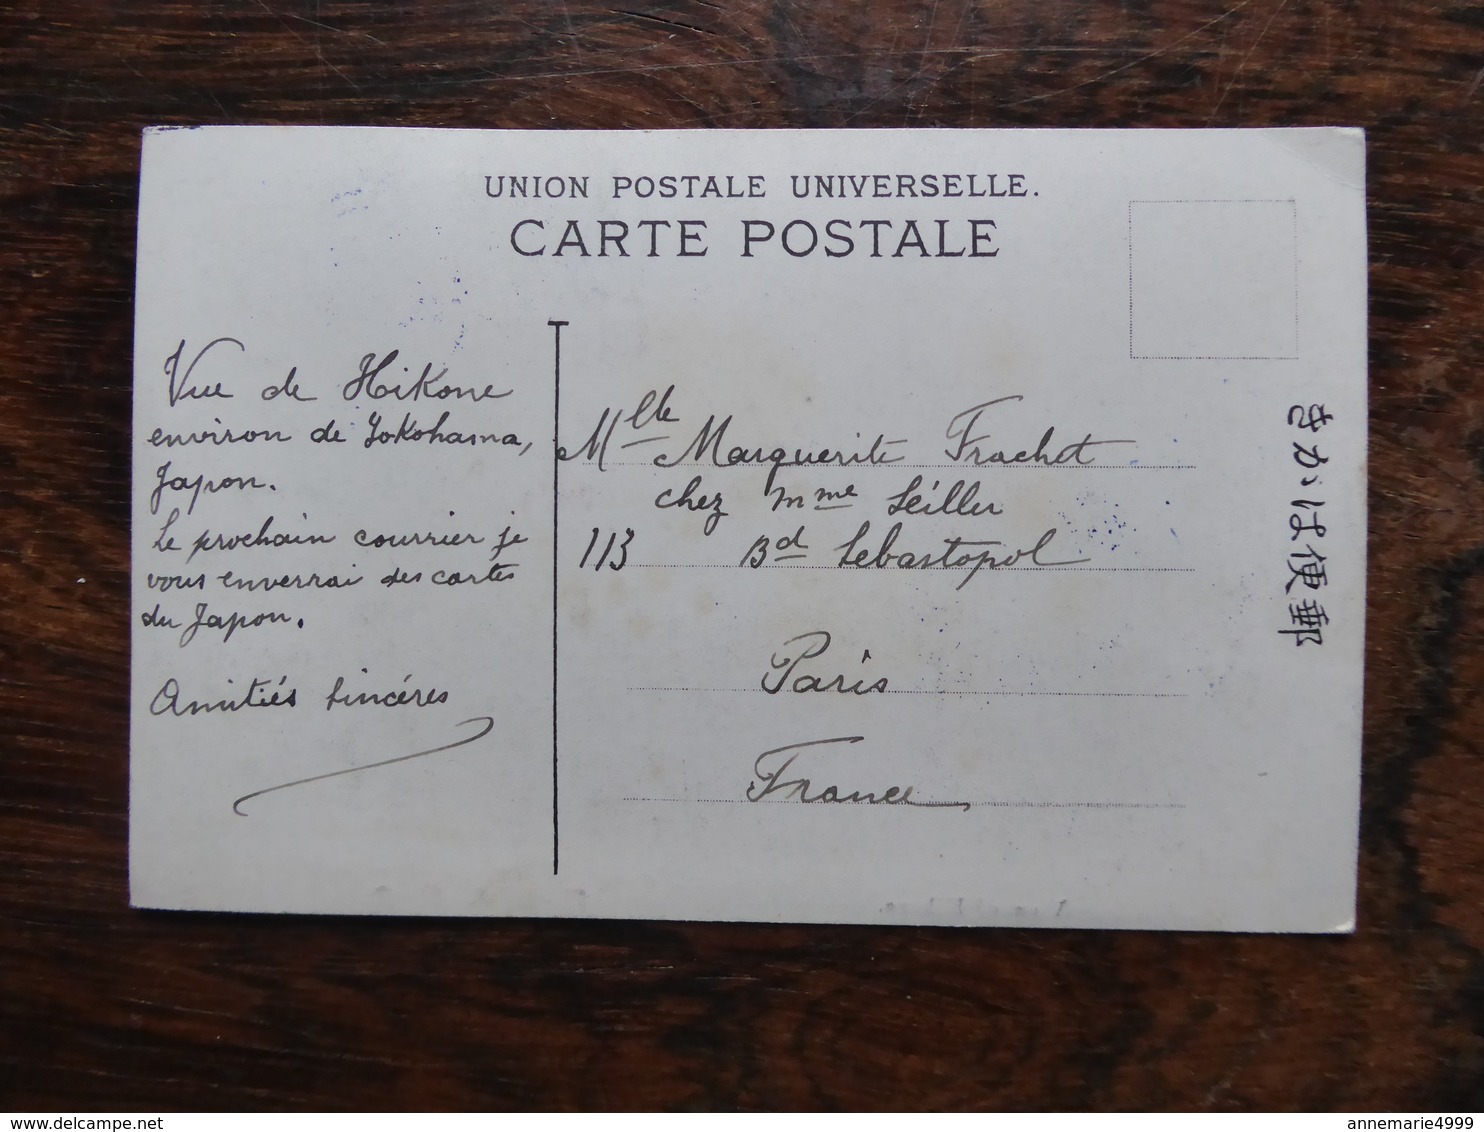 UNION POSTALE UNIVERSELLE.
CARTE POSTALE
Vue de Hikone
environ de Yokohama,
Japon.
Le prochain courrier je
vous enverrai des cartes
du Japon.
Amitiés sincéres
Mlle Marguerite Frachet
chez Mme Seiller
113 Bd Sebastopol
Paris
France
きかは便郵
delcampe.net
annemarie4999